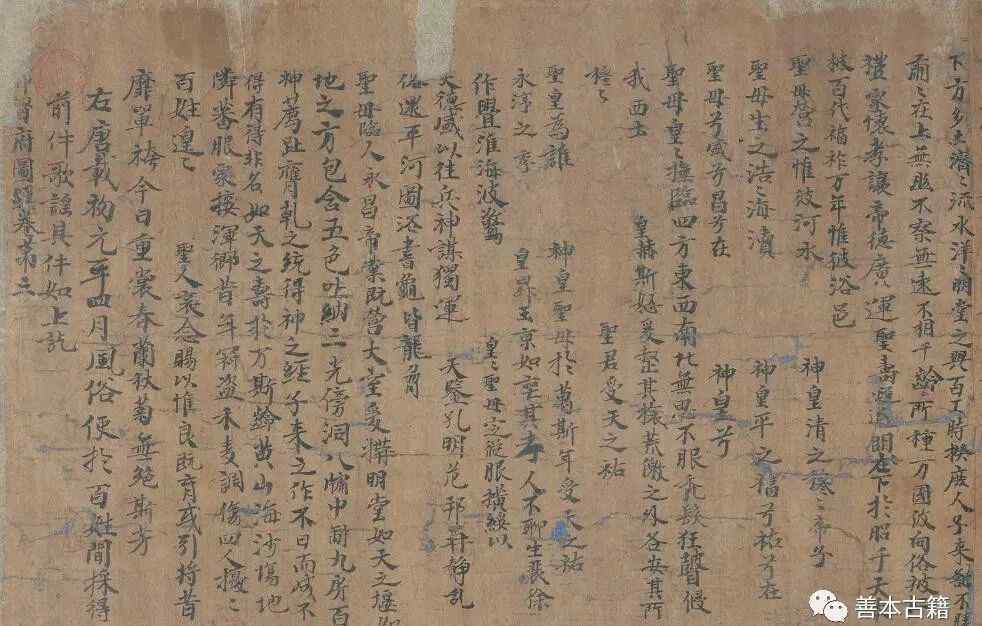 下方多士濟〻流水洋〻明堂之興百工時揆庶人子來鼛不勝
爾〻在上無幽不察無遠不相千齡所種万國攸向俗被
禮家懷孝讓帝德廣運聖壽遐 明在下於昭于天
百代福祚万年惟彼洛邑
聖母營之惟彼河水 神皇清之穆〻帝子
聖母生之浩〻海瀆 神皇平之福兮祐兮在
聖母兮盛兮昌兮在 神皇兮
聖母皇〻撫臨四方東西南北無思不服禿髮狂瞽侵
我西土 皇赫斯怒爰整其旅荒徼之外各安其所
穆〻 聖君受天之祐
聖皇為誰 神皇聖母於萬斯年受天之祜
永淳之季 皇昇玉京如喪其考人不聊生裴徐
作舋淮海波驚 皇〻聖母定縱服橫綏以
大德威以往兵神謀獨運 天鑒孔明危邦 靜亂
俗還平河圖洛書龜背龍脅
聖母臨人永昌帝業既營大室爰構明堂如天之堰如
地之方包含五色吐納三光傍洞八牖中制九房百
神薦趾膺乾之統得神之經子來之作不日而成不
得有得非名如天之壽於万斯齡黄山海 沙塲地
隣蕃服家接渾鄉昔年寇盗禾麦調傷四人擾〻
百姓遑〻 聖人哀念賜以惟良既育或引將昔
靡單袴今日重裳春蘭秋菊無絕斯芳
右唐載初元年四月風俗使於百姓間採得
前件歌謡具件如上訖
都督府圖經卷苐三
善本古籍